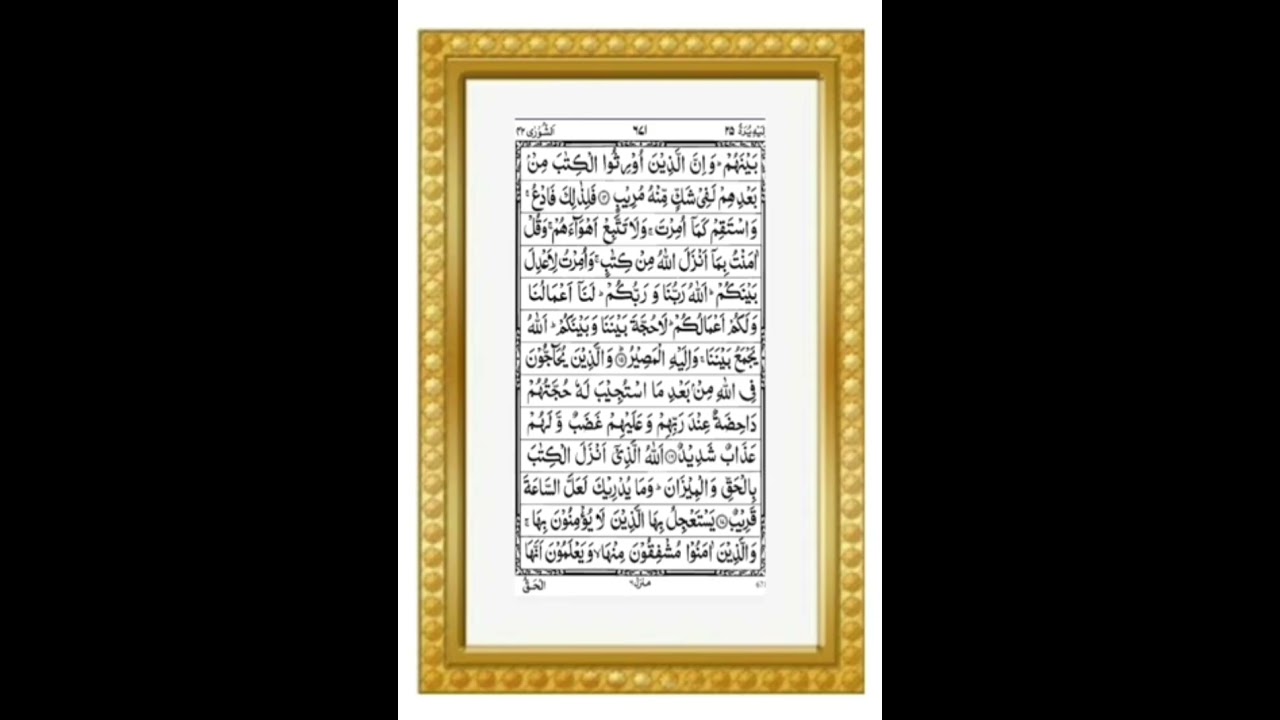 اِلَيْهِ يُرَدُّ ٢٥ ٦٧١ اَلشُّوْرٰى ٤٢
بَيْنَهُمْ ؕ وَاِنَّ الَّذِيْنَ اُوْرِثُوا الْكِتٰبَ مِنْۢ
بَعْدِهِمْ لَفِيْ شَكٍّ مِّنْهُ مُرِيْبٍ ۝۱۴ فَلِذٰلِكَ فَادْعُ ۚ
وَاسْتَقِمْ كَمَاۤ اُمِرْتَ ۚ وَلَا تَتَّبِعْ اَهْوَآءَهُمْ ۚ وَقُلْ
اٰمَنْتُ بِمَاۤ اَنْزَلَ اللّٰهُ مِنْ كِتٰبٍ ۚ وَاُمِرْتُ لِاَعْدِلَ
بَيْنَكُمْ ؕ اَللّٰهُ رَبُّنَا وَ رَبُّكُمْ ؕ لَنَاۤ اَعْمَالُنَا
وَلَكُمْ اَعْمَالُكُمْ ؕ لَا حُجَّةَ بَيْنَنَا وَبَيْنَكُمْ ؕ اَللّٰهُ
يَجْمَعُ بَيْنَنَا ۚ وَاِلَيْهِ الْمَصِيْرُ ۝۱۵ؕ وَالَّذِيْنَ يُحَآجُّوْنَ
فِي اللّٰهِ مِنْۢ بَعْدِ مَا اسْتُجِيْبَ لَهٗ حُجَّتُهُمْ
دَاحِضَةٌ عِنْدَ رَبِّهِمْ وَعَلَيْهِمْ غَضَبٌ وَّلَهُمْ
عَذَابٌ شَدِيْدٌ ۝۱۶ اَللّٰهُ الَّذِيْۤ اَنْزَلَ الْكِتٰبَ
بِالْحَقِّ وَالْمِيْزَانَ ؕ وَمَا يُدْرِيْكَ لَعَلَّ السَّاعَةَ
قَرِيْبٌ ۝۱۷ يَسْتَعْجِلُ بِهَا الَّذِيْنَ لَا يُؤْمِنُوْنَ بِهَا ۚ
وَالَّذِيْنَ اٰمَنُوْا مُشْفِقُوْنَ مِنْهَا ۙ وَيَعْلَمُوْنَ اَنَّهَا
منزل ٦ الْحَقُّ